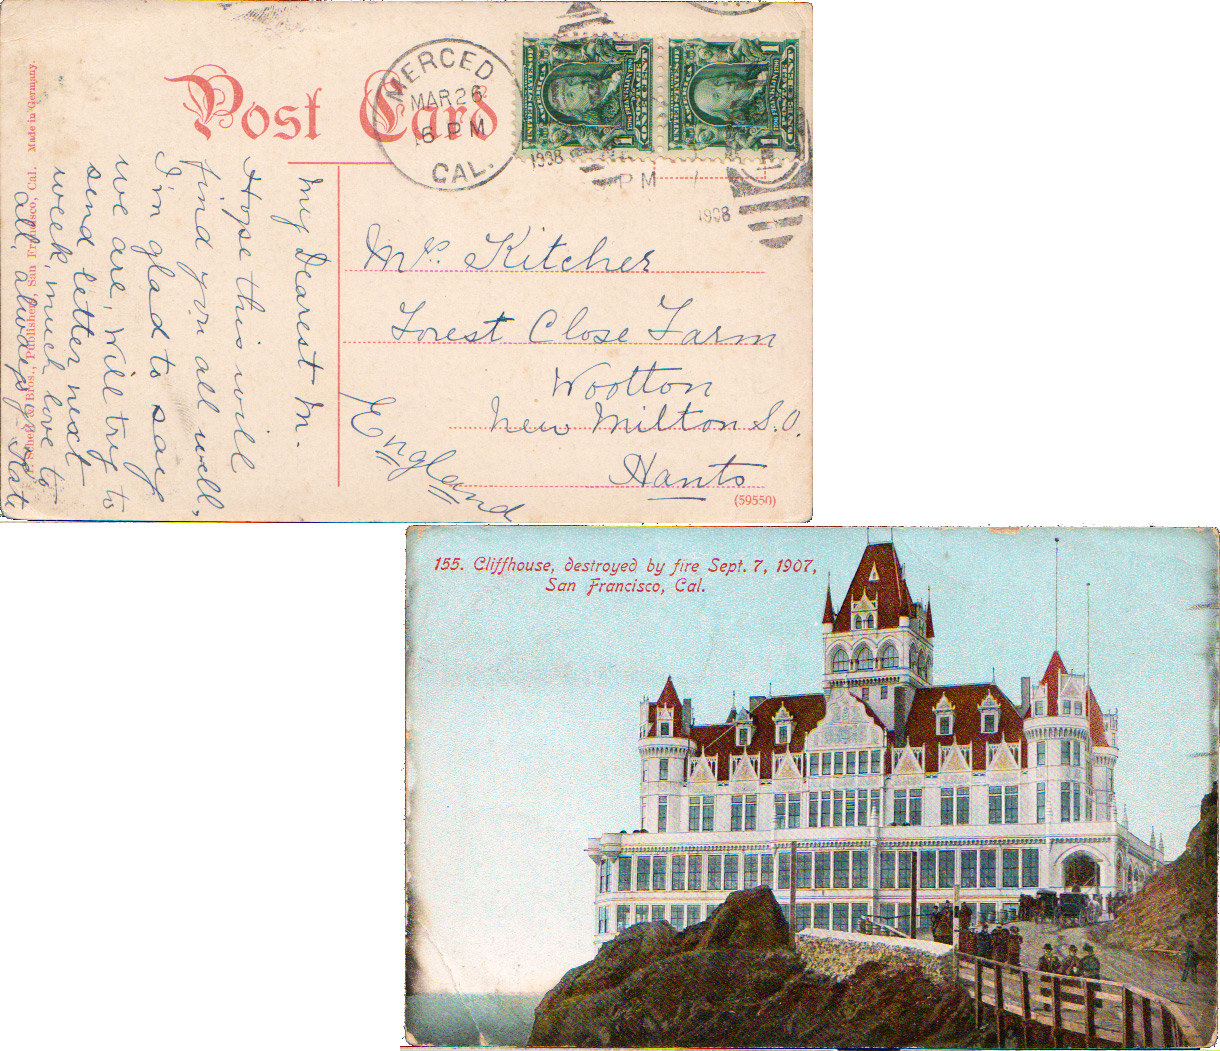 Post Card
MERCED
MAR 26
6 PM
CAL.
1908
PM
1908
My Dearest M.
Hope this will
find you all well,
I'm glad to say
we are, Will try to
send letter next
week, much love to
all, always yr
Kate
Mr. Kitcher
Forest Close Farm
Wootton
New Milton S.O.
Hants
England
(59550)
Bros., Publishers, San Francisco, Cal. Made in Germany.
155. Cliffhouse, destroyed by fire Sept. 7, 1907,
San Francisco, Cal.